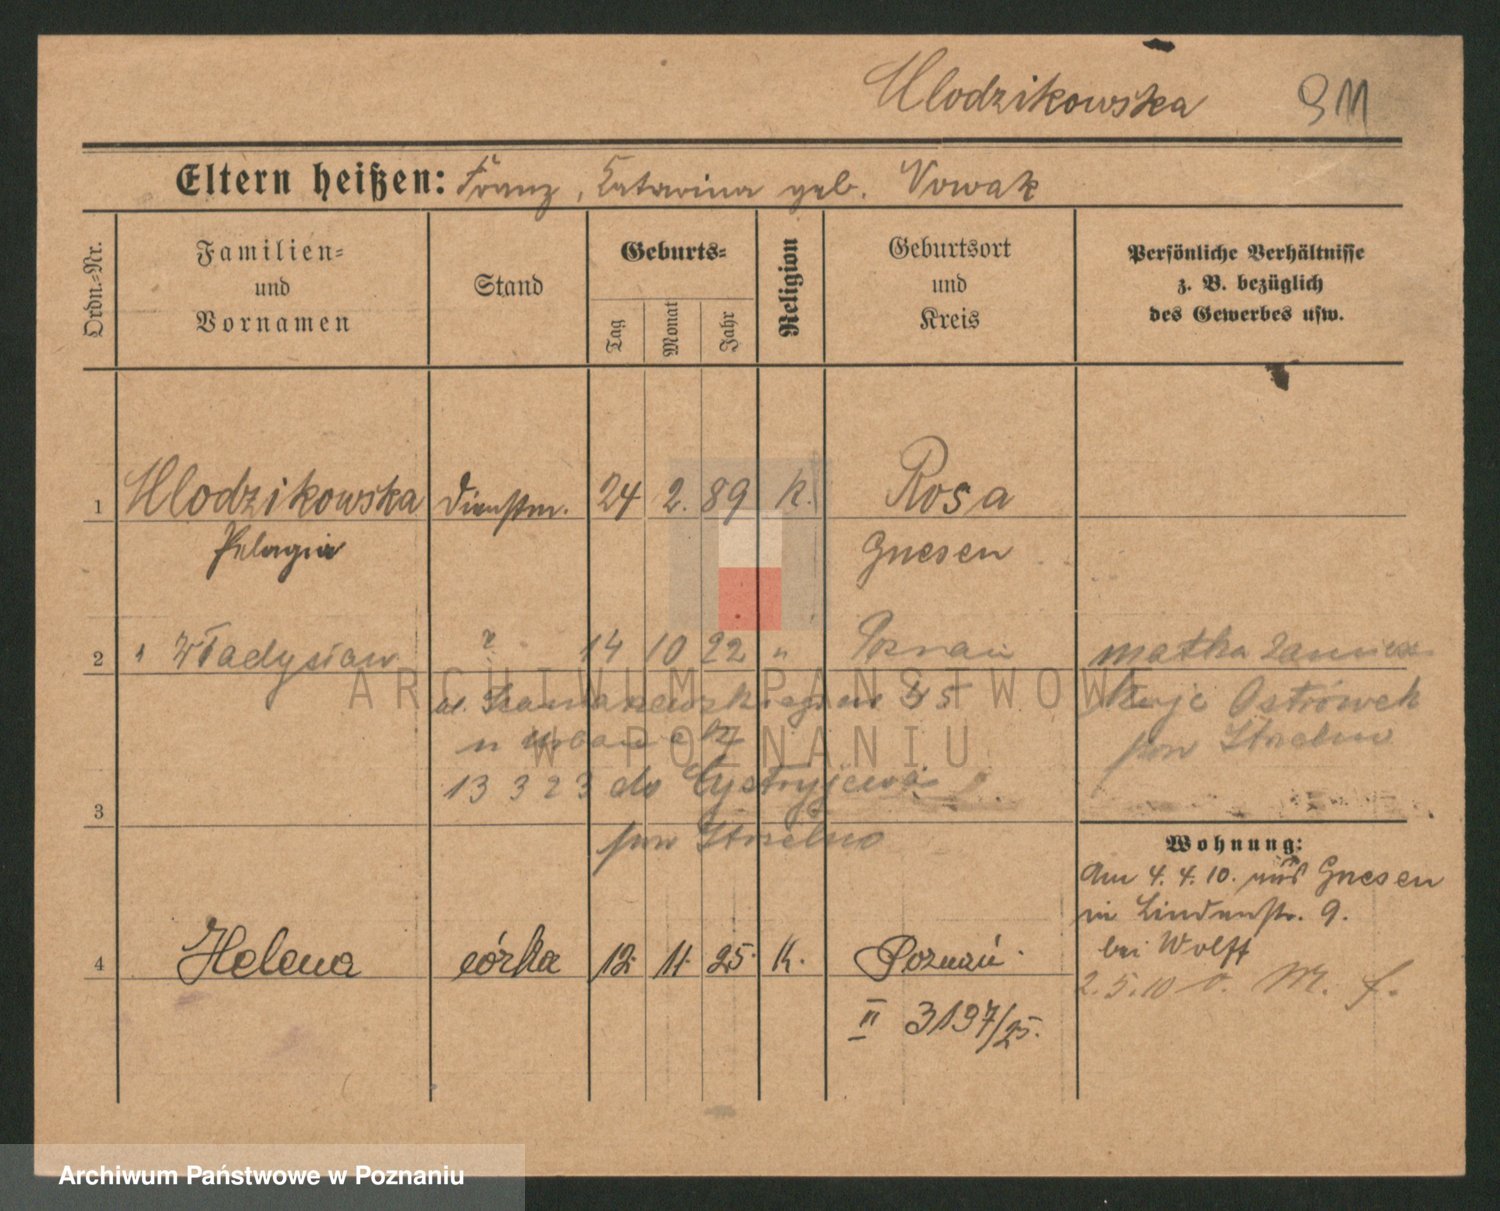 Wlodzikowska 911
Eltern heißen: Franz, Katarina geb. Nowak
Ordn.-Nr.
Familien-
und
Vornamen
Stand
Geburts-
Tag
Monat
Jahr
Religion
Geburtsort
und
Kreis
Persönliche Verhältnisse
z. B. bezüglich
des Gewerbes usw.
1 Wlodzikowska Dienstm. 24 2. 89 K. Rosa
Pelagia Gnesen
2 Władysław 14 10 22 " Poznań matka
Ostrówek
45 pow Strelno
u Urbana
13 3 23 do
pow Strelno
3
Wohnung:
Am 4. 4. 10. aus Gnesen
in Lindenstr. 9.
bei Wolff
2. 5. 10 v. M. f.
4 Helena córka 12. 11. 25. K. Poznań.
III 3197/25.
ARCHIWUM PAŃSTWOWE
W POZNANIU
Archiwum Państwowe w Poznaniu